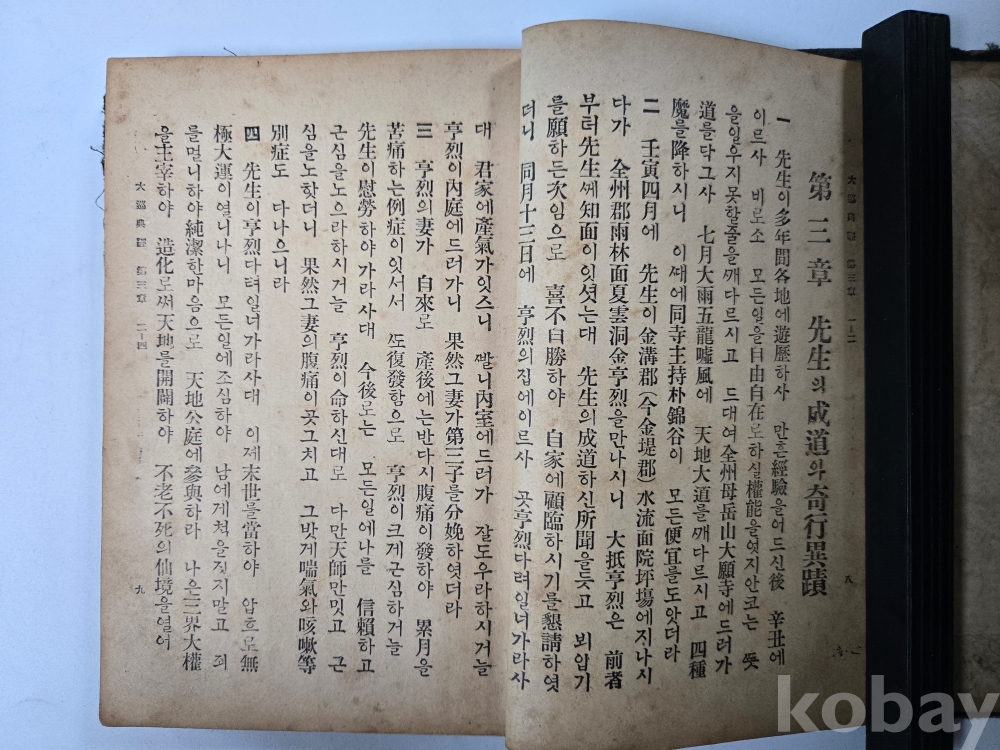 大巡典經 第三章 一—二
八
第三章 先生의成道와奇行異蹟
一 先生이多年間各地에遊歷하사 만흔經驗을어드신後 辛丑에
이르사 비로소 모든일을自由自在로하실權能을엇지안코는 뜻
을일우지못할줄을깨다르시고 드대여全州母岳山大願寺에드러가
道를닥그사 七月大雨五龍噓風에 天地大道를깨다르시고 四種
魔를降하시니 이때에同寺主持朴錦谷이 모든便宜를도앗더라
二 壬寅四月에 先生이金溝郡(今金堤郡)水流面院坪塲에지나시
다가 全州郡雨林面夏雲洞金亨烈을만나시니 大抵亨烈은 前者
부터先生께知面이잇섯는대 先生의成道하신所聞을듯고 뵈압기
를願하든次임으로 喜不自勝하야 自家에顧臨하시기를懇請하엿
더니 同月十三日에 亨烈의집에이르사 곳亨烈다려일너가라사
대 君家에產氣가잇스니 빨니內室에드러가 잘도우라하시거늘
亨烈이內庭에드러가니 果然그妻가第三子를分娩하엿더라
三 亨烈의妻가 自來로 產後에는반다시腹痛이發하야 累月을
苦痛하는例症이잇서서 또復發함으로 亨烈이크게근심하거늘
先生이慰勞하야가라사대 今後로는 모든일에나를 信賴하고
근심을노으라하시거늘 亨烈이命하신대로 다만天師만밋고 근
심을노핫더니 果然그妻의腹痛이곳그치고 그밧게喘氣와咳嗽等
別症도 다나으니라
四 先生이亨烈다려일너가라사대 이제末世를當하야 압흐로無
極大運이열니나니 모든일에조심하야 남에게척을짓지말고 죄
를멀니하야純潔한마음으로 天地公庭에參與하라 나은三界大權
을主宰하야 造化로써天地를開闢하야 不老不死의仙境을열어
大巡典經 第三章 二—四
九
kobay